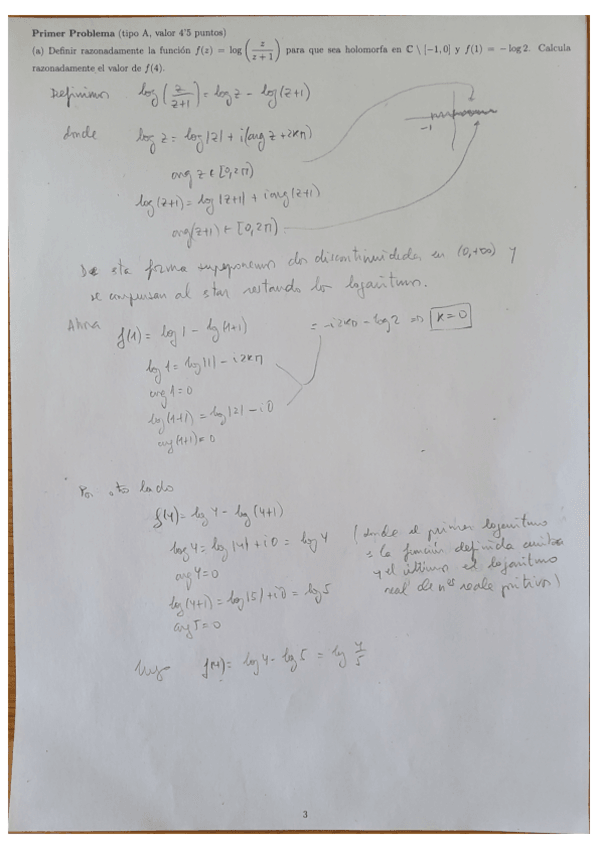 Primer Problema (tipo A, valor 4'5 puntos)
(a) Definir razonadamente la función f(z) = log (z/(z+1)) para que sea holomorfa en C \ [−1, 0] y f(1) = − log 2. Calcula
razonadamente el valor de f(4).
Definimos log(z/(z+1)) = log z - log(z+1)
-1
donde log z = log|z| + i(arg z + 2kπ)
arg z ∈ [0,2π)
log(z+1) = log|z+1| + i arg(z+1)
arg(z+1) ∈ [0,2π)
De esta forma superponemos dos discontinuidades en (0,+∞) y
se compensan al estar restando los logaritmos.
Ahora f(1) = log 1 - log(1+1) = -i2kπ - log 2 ⇒ k=0
log 1 = log|1| - i2kπ
arg 1 = 0
log(1+1) = log|2| - i0
arg(1+1) = 0
Por otro lado
f(4) = log 4 - log(4+1)
log 4 = log|4| + i0 = log 4
arg 4 = 0
log(4+1) = log|5| + i0 = log 5
arg 5 = 0
(donde el primer logaritmo
es la función definida
y el último el logaritmo
real de nºs reales positivos)
Luego f(4) = log 4 - log 5 = log 4/5
3